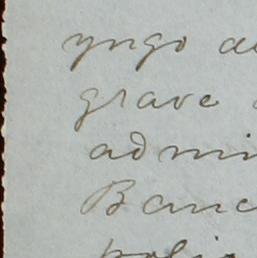 yngo
grave
admi
Banc